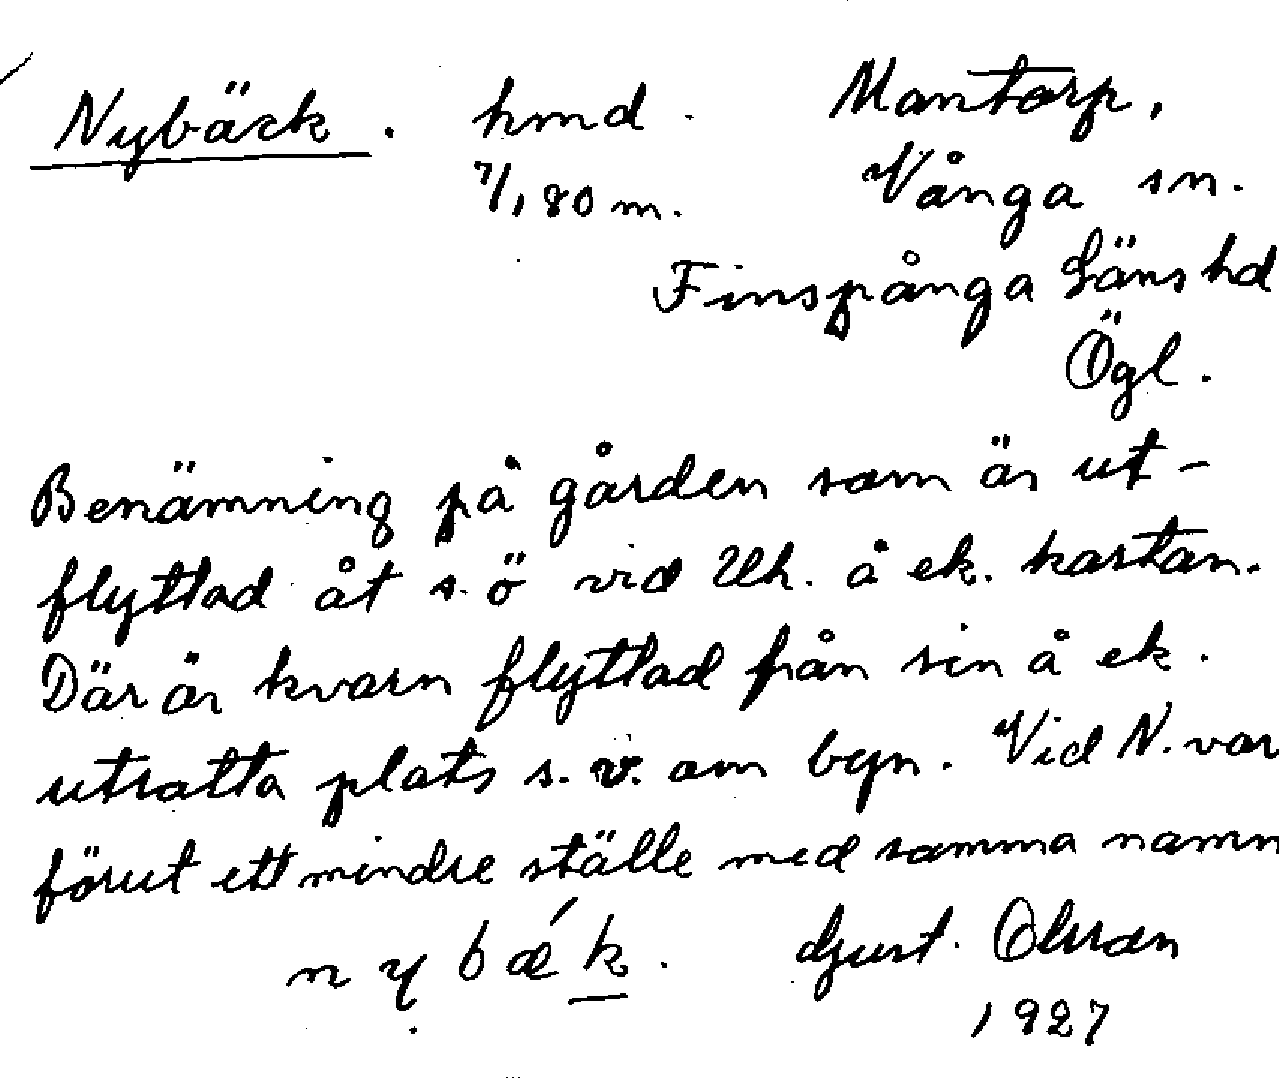 Nybäck. hmd. Mantorp,
7/1 80 m. Vånga sn.
Finspånga Läns hd
Ögl.
Benämning på gården som är ut-
flyttad åt s.ö vid Uh. å ek. kartan.
Där är kvarn flyttad från sin å ek.
utsatta plats s.v. om byn. Vid N. var
förut ett mindre ställe med samma namn
nybǽk. Gust. Olsson
1927